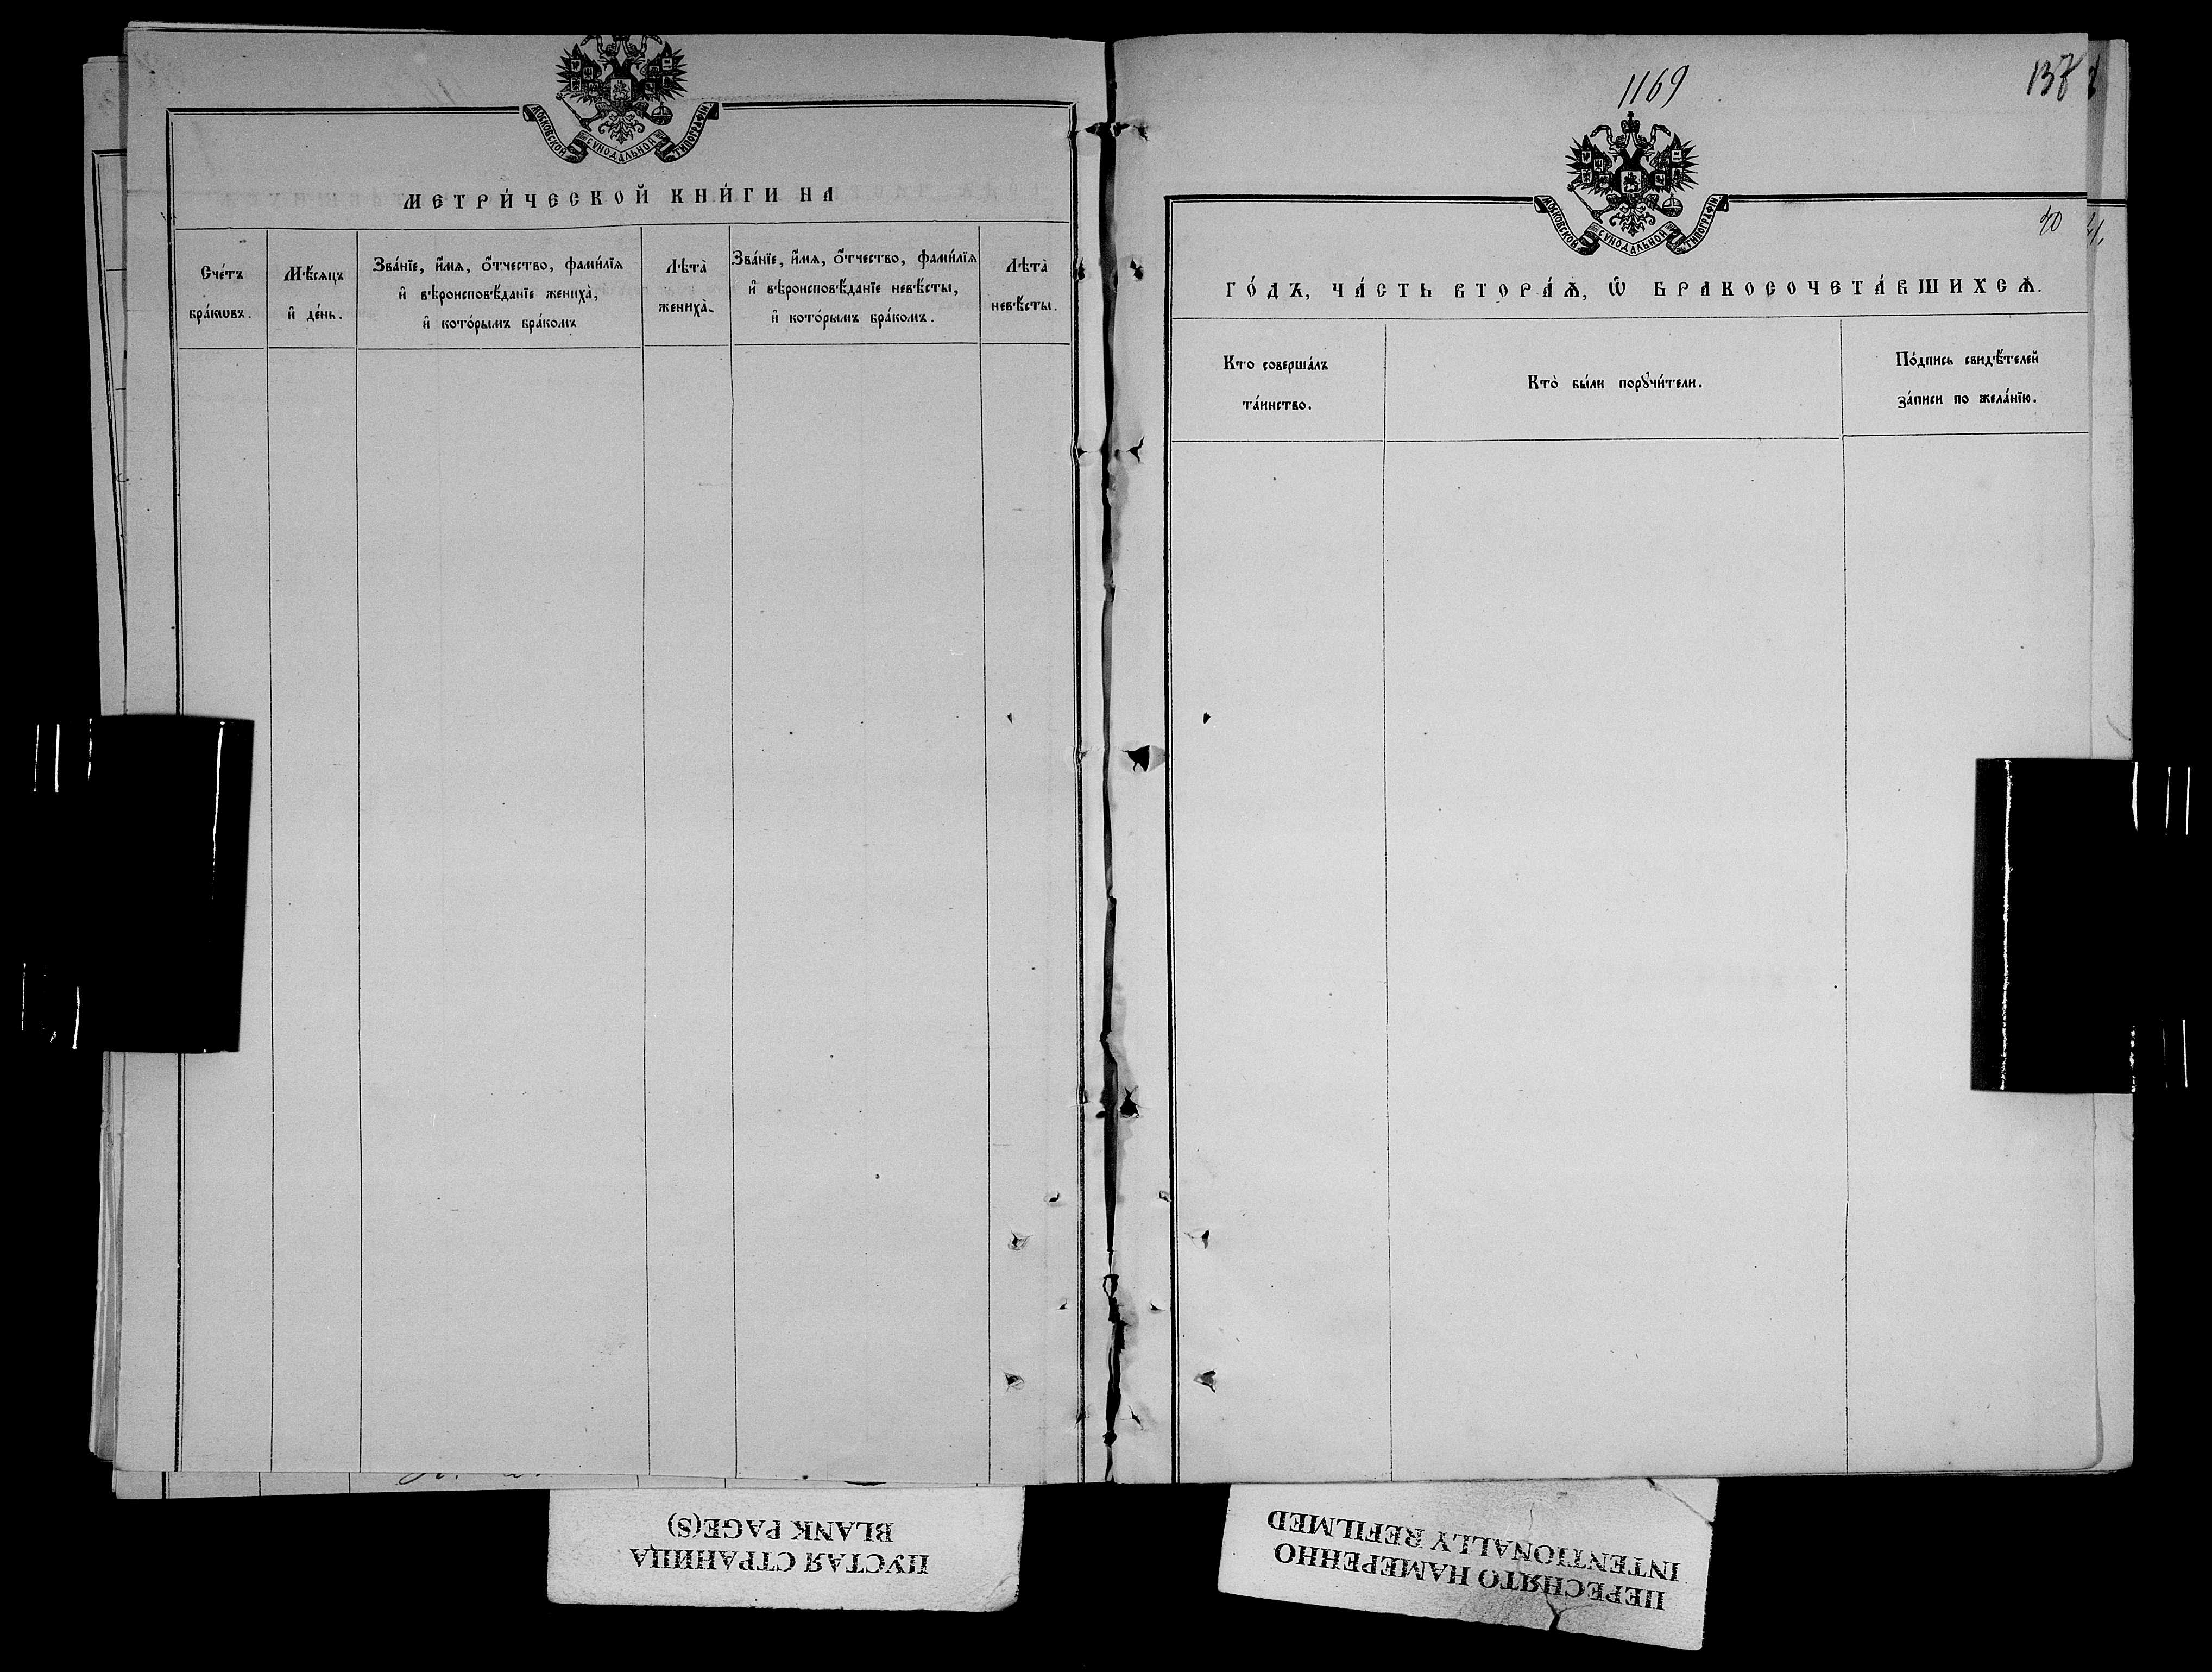 МОСКОВСКОЙ СѴНОДАЛЬНОЙ ТИПОГРАФІИ.
МЕТРИ́ЧЕСКОЙ КНИ́ГИ НА
Сче́тъ
бра́кѡвъ.
Мѣ́сяцъ
и҆ де́нь.
Зва́нїе, и҆́мѧ, ѻ҆́тчество, фами́лїѧ
и҆ вѣроисповѣ́данїе жениха̀,
и҆ кото́рымъ бра́комъ
Лѣта̀
жениха̀.
Зва́нїе, и҆́мѧ, ѻ҆́тчество, фами́лїѧ
и҆ вѣроисповѣ́данїе невѣ́сты,
и҆ кото́рымъ бра́комъ.
Лѣта̀
невѣ́сты.
1169
137
МОСКОВСКОЙ СѴНОДАЛЬНОЙ ТИПОГРАФІИ.
40
ГО́ДЪ, ЧА́СТЬ ВТОРА́Ѧ, Ѡ҆ БРАКОСОЧЕТА́ВШИХСѦ.
Кто совершáлъ
та́инство.
Кто̀ бы́ли порꙋчи́тели.
По́дпись свидѣ́телей
за́писи по жела́нїю.
ПУСТАЯ СТРАНИЦА
BLANK PAGE(S)
ПЕРЕСНЯТО НАМЕРЕННО
INTENTIONALLY REFILMED